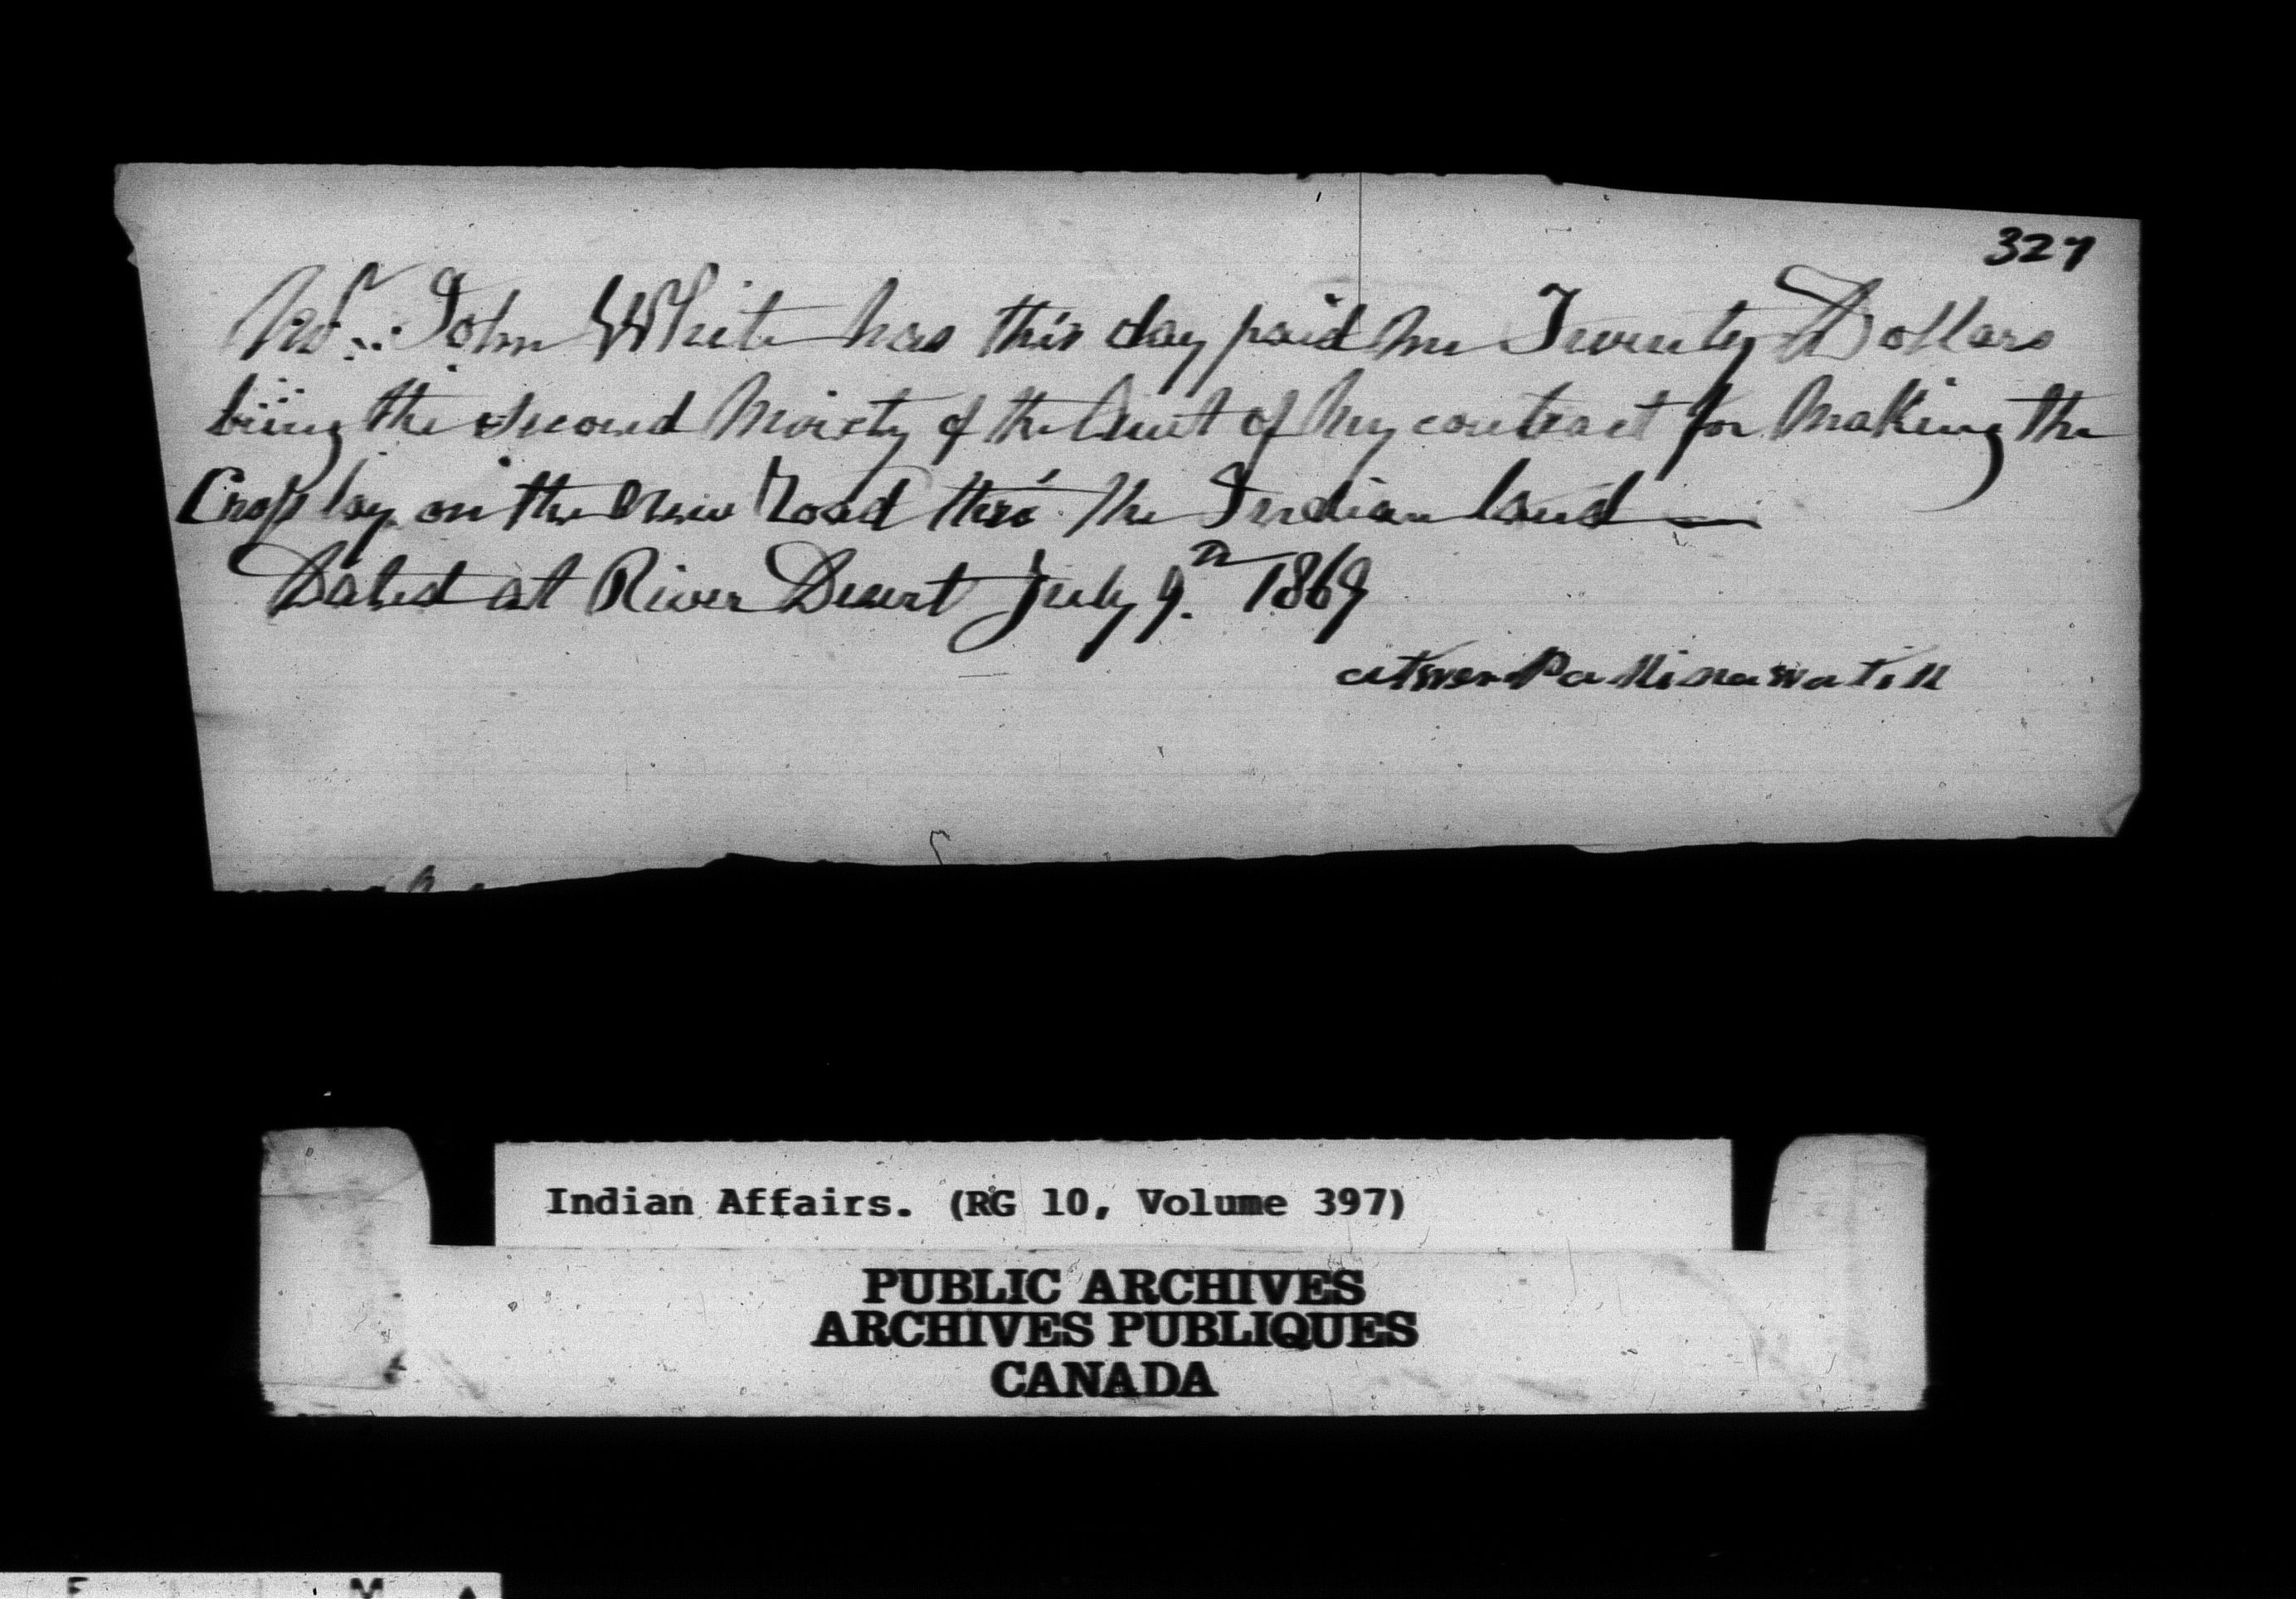 327
Mr. John White has this day paid me Twenty Dollars
being the second Moiety of the Amt of my contract for Making the
Cross lay on the New Road thro' the Indian land —
Dated at River Desert July 9th 1869
Indian Affairs. (RG 10, Volume 397)
PUBLIC ARCHIVES
ARCHIVES PUBLIQUES
CANADA